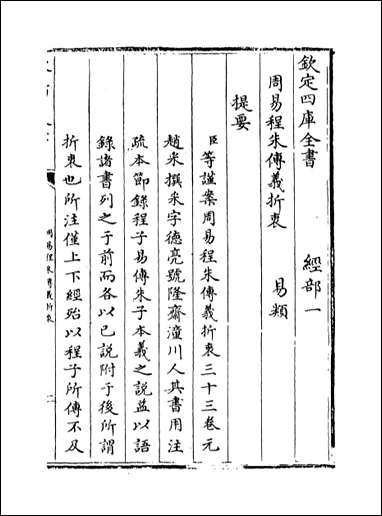 欽定四庫全書　　經部一
周易程朱傳義折衷　　易類
提要
臣等謹案周易程朱傳義折衷三十三卷元
趙采撰采字德亮號隆齋潼川人其書用注
疏本節錄程子易傳朱子本義之說益以語
錄諸書列之于前而各以已說附于後所謂
折衷也所注僅上下經殆以程子所傳不及
周易程朱傳義折衷